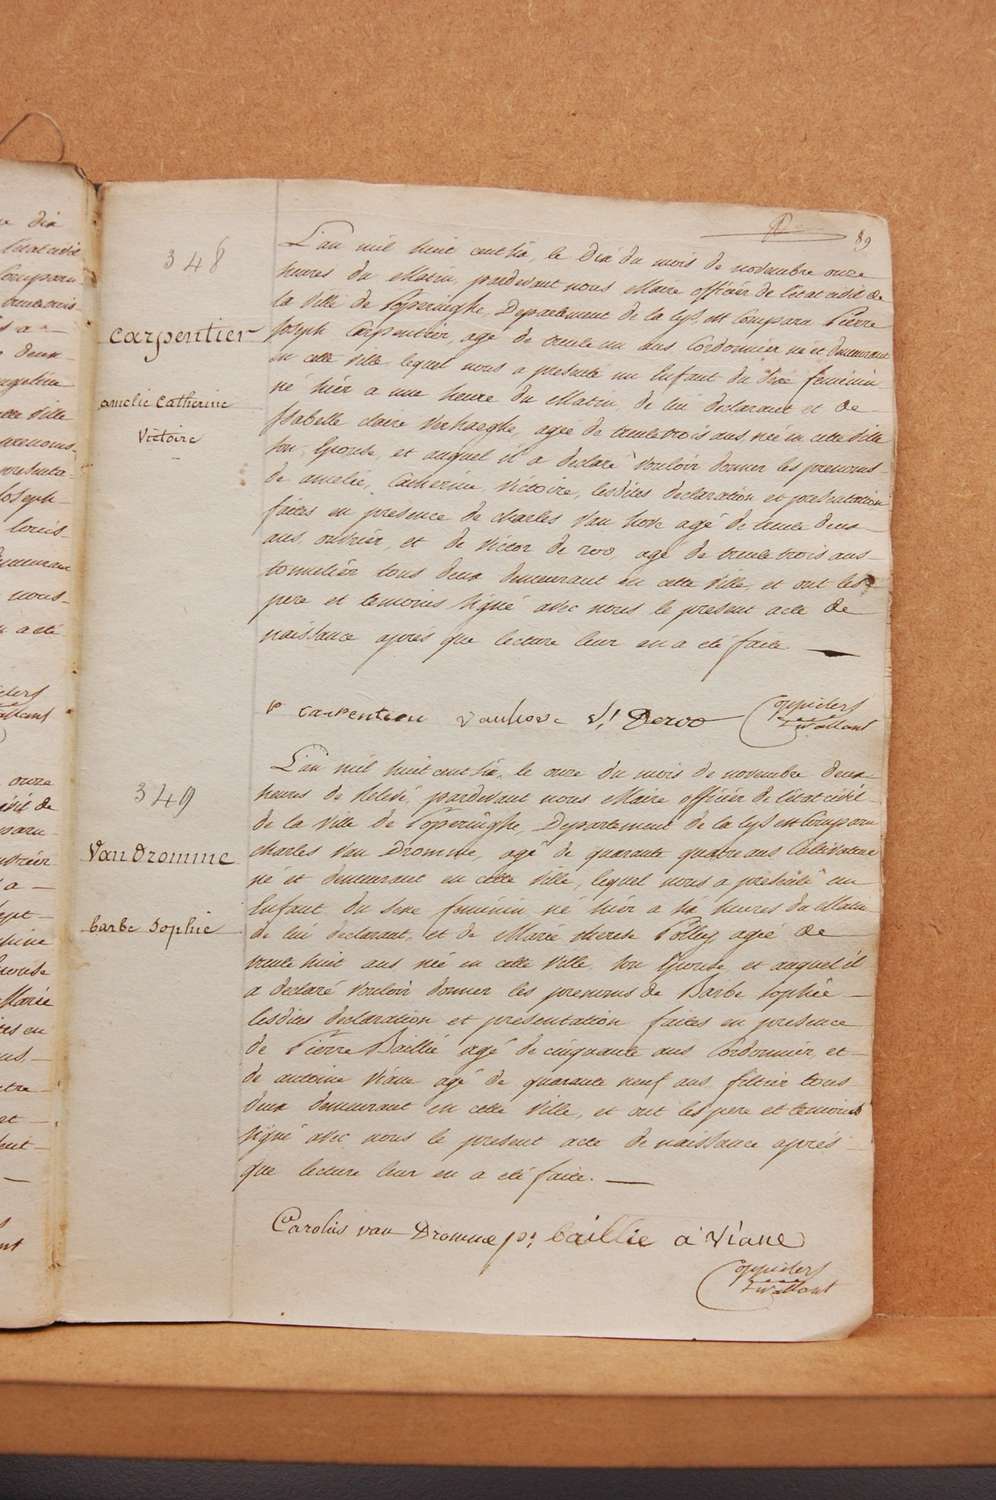 89
348
Carpentier
amelie Catherine
Victoire
L'an mil huit cent six, le Dix du mois de novembre onze
heures du Matin, pardevant nous Maire officier de l'état civil de
la Ville de Poperinghe, Departement de la Lys, est Comparu Pierre
Joseph Carpentier, agé de trente un ans Cordonnier né et demeurant
en cette Ville lequel nous a presenté un Enfant du Sexe feminin
né hier a une heure du Matin, de lui declarant et de
Isabelle Claire Verhaeghe, agée de trente trois ans née en cette Ville
son Epouse, et auquel il a declaré vouloir donner les prenoms
de amelie, Catherine, Victoire, lesdites declaration et presentation
faites en presence de Charles Van hove agé de trente deux
ans, ouvrier, et de Victor de roo, agé de trente trois ans
tonnelier tous deux demeurant en cette Ville, et ont les
pere et temoins signé avec nous le present acte de
naissance apres que lecture leur en a eté faite
p carpentier vanhove V. Deroo
349
Van Dromme
barbe Sophie
L'an mil huit cent six, le onze du mois de novembre deux
heures de relevé, pardevant nous Maire officier de l'état civil
de la Ville de Poperinghe, Departement de la Lys est Comparu
Charles Van Dromme, agé de quarante quatre ans Cultivateur
né et demeurant en cette Ville, lequel nous a presenté un
Enfant du Sexe feminin né hier a six heures du Matin
de lui declarant, et de Marie therese Polley agée de
trente huit ans née en cette Ville, son Epouse, et auquel il
a declaré vouloir donner les prenoms de Barbe Sophie
lesdites declaration et presentation faites en presence
de Pierre Baillie agé de cinquante ans Cordonnier, et
de antoine Viane agé de quarante neuf ans, filtier tous
deux demeurant en cette Ville, et ont les pere et temoins
signé avec nous le present acte de naissance après
que lecture leur en a eté faite.
Carolus van Dromme p. baillie a Viane